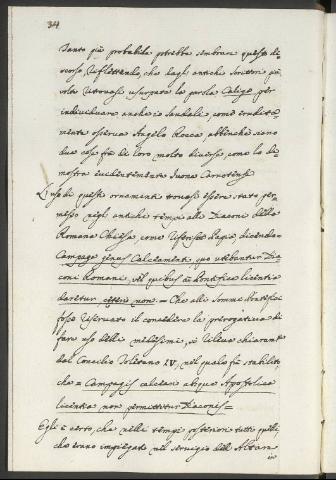 34
tanto più probabile potrebbe sembrare questo di-
scorso, riflettendo, che dagli antichi Scrittori più
volte ritrovasi usurpata la parola Caliga per
individuare anche i Sandali, come erudita-
mente osserva Angelo Rocca, abbenchè siano
due cose frà di loro molto diverse, come lo di-
mostra evidentemente Ivone Carnotense
L'uso di questi ornamenti trovasi essere stato per-
messo negli antichi tempi alli Diaconi della
Romana Chiesa, come riferisce Papia, dicendo =
Campagae genus Calciamenti, quo utebantur Dia-
coni Romani, nil quibus à Pontifice licentia
daretur, ceteris non = Che alli sommi Pontefici
fosse riservato il concedere la prerogativa di
fare uso delli medesimi, si rileva chiaramente
dal Concilio Toletano IV, nel quale fù stabilito,
che = Campagis calceari absque Apostolica
licentia non permittitur Diaconis =
Egli è certo, che nelli tempi posteriori tutti quelli
che erano impiegati nel servigio dell'Altare
in